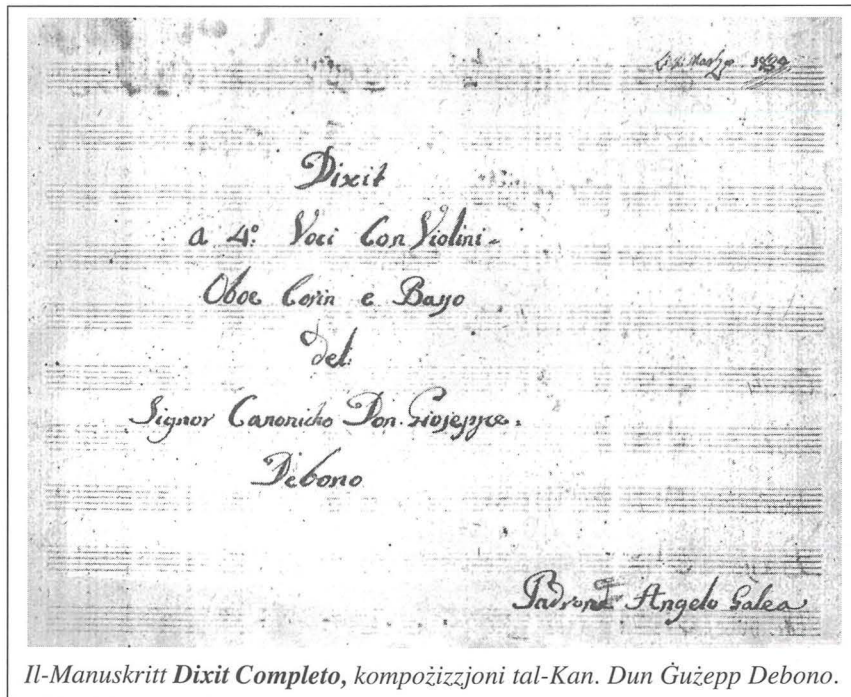 Marzo
Dixit
a 4º: Voci Con Violini-
Oboe Corin e Basso
del:
Signor Canonicho Don. Giuseppe.
Debono
Padrone Angelo Galea
Il-Manuskritt Dixit Completo, kompożizzjoni tal-Kan. Dun Ġużepp Debono.